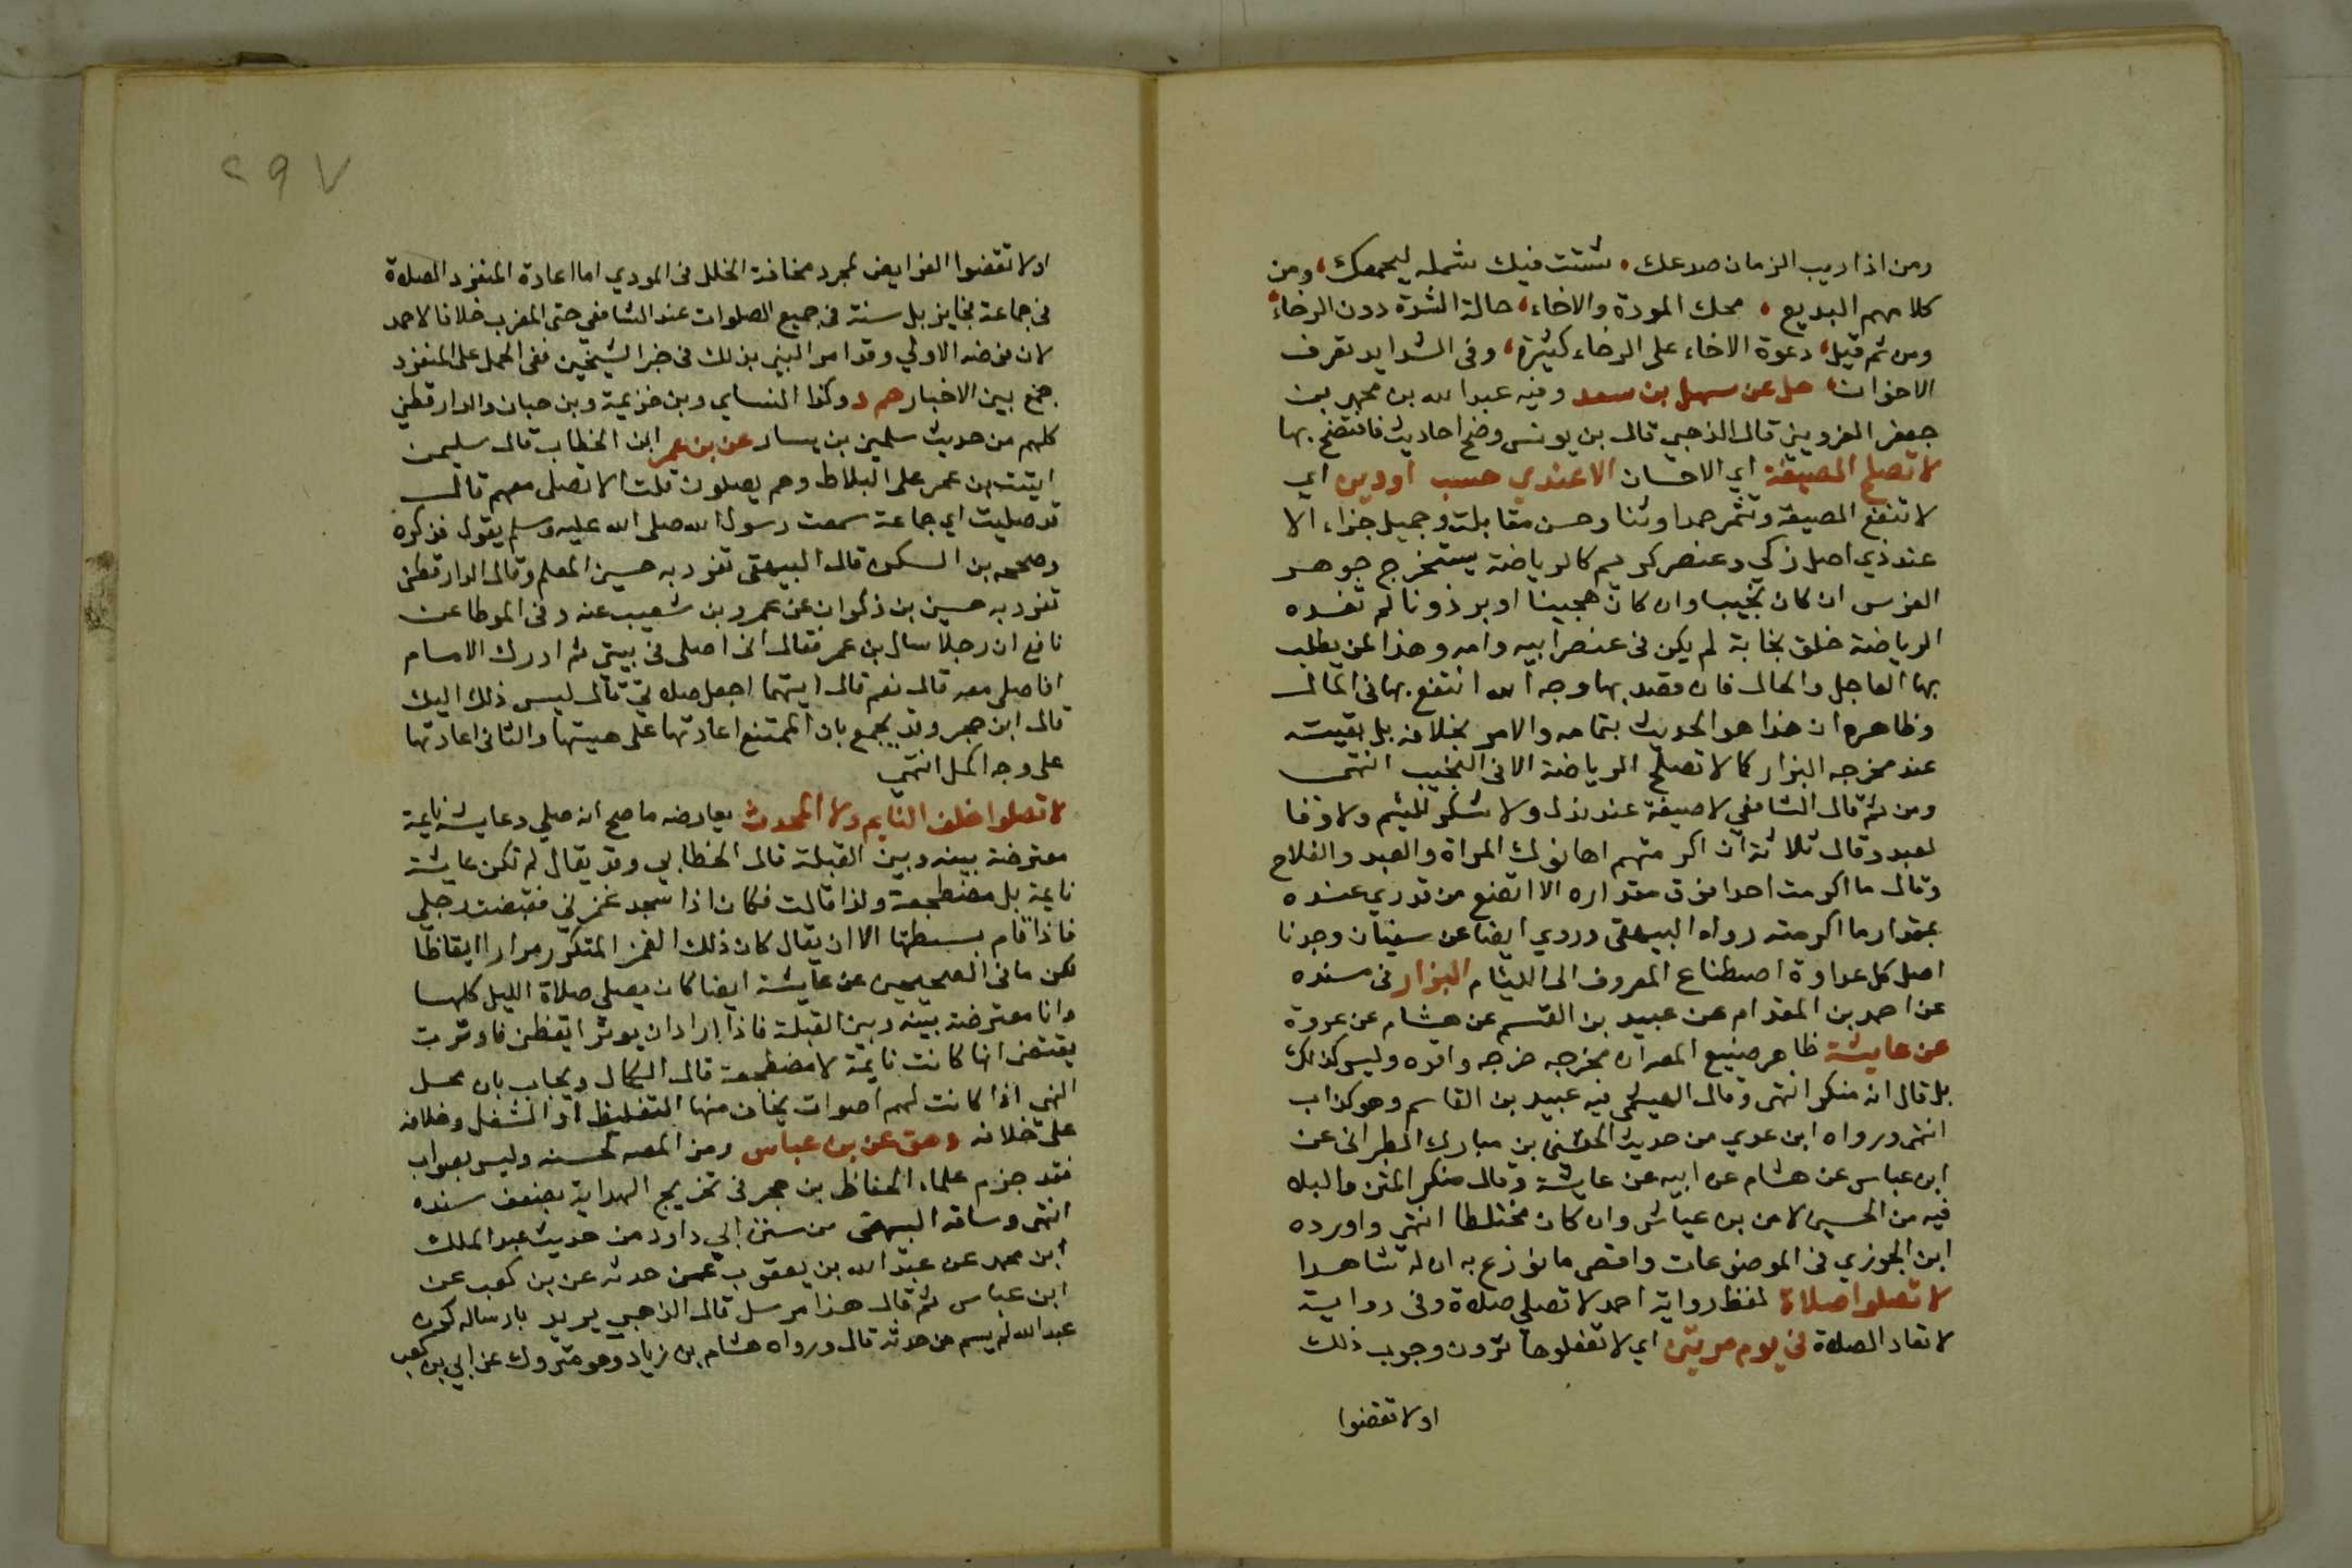 ومن اذا ريب الزمان صدعك، شتت فيك شمله ليجمعك، ومن
كلامهم البديع، محك المودة والاخاء، حالة الشدة دون الرخاء،
ومن ثم قيل، دعوة الاخاء على الرخاء كثيرة، وفى الشدايد تعرف
الاخوان، حل عن سهل بن سعد وفيه عبد الله بن محمد بن
جعفر القزويني قال الذهبي قال بن يونس وضع احاديث فافتضح بها
لا تصلح الصنيعة اي الاحسان الا عند ذي حسب او دين اي
لا تنفع الصنيعة وتثمر حمدا وثنا وحسن مقابلة وجميل جزاء الا
عند ذي اصل زكي وعنصر كريم كالرياضة يستخرج جوهر
الفرس ان كان نجيبا وان كان هجينا او برذونا لم تفده
الرياضة خلق نجابة لم يكن فى عنصر ابيه وامه وهذا لمن يطلب
بها العاجل والحال فان قصد بها وجه الله انتفع بها فى المال
وظاهره ان هذا هو الحديث بتمامه والامر بخلافه بل بقيته
عند مخرجه البزار كما لا تصلح الرياضة الا فى النجيب انتهى
ومن ثم قال الشافعي لا صنيعة عند نذل ولا شكر للئيم ولا وفا
لعبد وقال ثلاثة ان اكرمتهم اهانوك المراة والعبد والفلاح
وقال ما اكرمت احدا فوق مقداره الا اتضع من قدري عنده
بمقدار ما اكرمته رواه البيهقى وروي ايضا عن سفيان وجدنا
اصل كل عداوة اصطناع المعروف الى اللئام البزار فى مسنده
عن احمد بن المقدام عن عبيد بن القسم عن هشام عن عروة
عن عايشة ظاهر صنيع المص ان مخرجه خرجه واقره وليس كذلك
بل قال انه منكر انتهى وقال الهيثمى فيه عبيد بن القاسم وهو كذاب
انتهى ورواه ابن عدي من حديث المثنى بن مبارك الطبرانى عن
ابن عباس عن هشام عن ابيه عن عايشة وقال منكر المتن والبلا
فيه من الحسين لا من بن عياش وان كان مختلطا انتهى واورده
ابن الجوزي فى الموضوعات واقصى ما نوزع به ان له شاهدا
لا تصلوا صلاة لفظ رواية احمد لا تصلى صلاة وفى رواية
لا تعاد الصلاة فى يوم مرتين اي لا تفعلوها ترون وجوب ذلك
او لا تقضوا
٢٩٧
او لا تقضوا الفرايض لمجرد مخافة الخلل فى المودي اما اعادة المنفرد الصلاة
فى جماعة فجايز بل سنة فى جميع الصلوات عند الشافعي حتى المغرب خلافا لاحمد
لان فرضه الاولي وقد امر النبي بذلك فى خبر الشيخين ففى الحمل على المنفرد
جمع بين الاخبار حم د وكذا النساي وبن خزيمة وبن حبان والدارقطني
كلهم من حديث سليمن بن يسار عن بن عمر ابن الخطاب قال سليمن
اتيت بن عمر على البلاط وهم يصلون قلت الا تصلى معهم قال
قد صليت اي جماعة سمعت رسول الله صلى الله عليه وسلم يقول فذكره
وصححه بن السكن قال البيهقى تفرد به حسين المعلم وقال الدارقطنى
تفرد به حسين بن ذكوان عن عمرو بن شعيب عنه وفى الموطا عن
نافع ان رجلا سال بن عمر فقال انى اصلى فى بيتي ثم ادرك الامام
افاصلى معه قال نعم قال ايتهما اجعل صلاتي قال ليس ذلك اليك
قال ابن حجر وقد يجمع بان الممتنع اعادتها على هيتها والثانى اعادتها
على وجه اكمل انتهي
لا تصلوا خلف النايم ولا المحدث يعارضه ما صح انه صلي وعايشة نايمة
معترضة بينه وبين القبلة قال الخطابي وقد يقال لم تكن عايشة
نايمة بل مضطجعة ولذا قالت فكان اذا سجد غمزني فقبضت رجلي
فاذا قام بسطتها الا ان يقال كان ذلك الغمز المتكرر مرارا ايقاظا
لكن ما فى الصحيحين عن عايشة ايضا كان يصلى صلاة الليل كلها
وانا معترضة بينه وبين القبلة فاذا اراد ان يوتر ايقظنى فاوترت
يقتضى انها كانت نايمة لا مضطجعة قال الكمال ويجاب بان محمل
النهي اذا كانت لهم اصوات يخاف منها التغليط او الشغل وخلافه
على خلافه د هق عن بن عباس رمز المص لحسنه وليس بصواب
فقد جزم علماء الحفاظ بن حجر فى تخريج الهداية بضعف سنده
انتهى وساقه البيهقى من سنن ابي داود من حديث عبد الملك
ابن محمد عن عبد الله بن يعقوب عمن حدثه عن بن كعب عن
ابن عباس ثم قال هذا مرسل قال الذهبي يريد بارساله كون
عبد الله لم يسم من حدثه قال ورواه هشام بن زياد وهو متروك عن ابي بن كعب